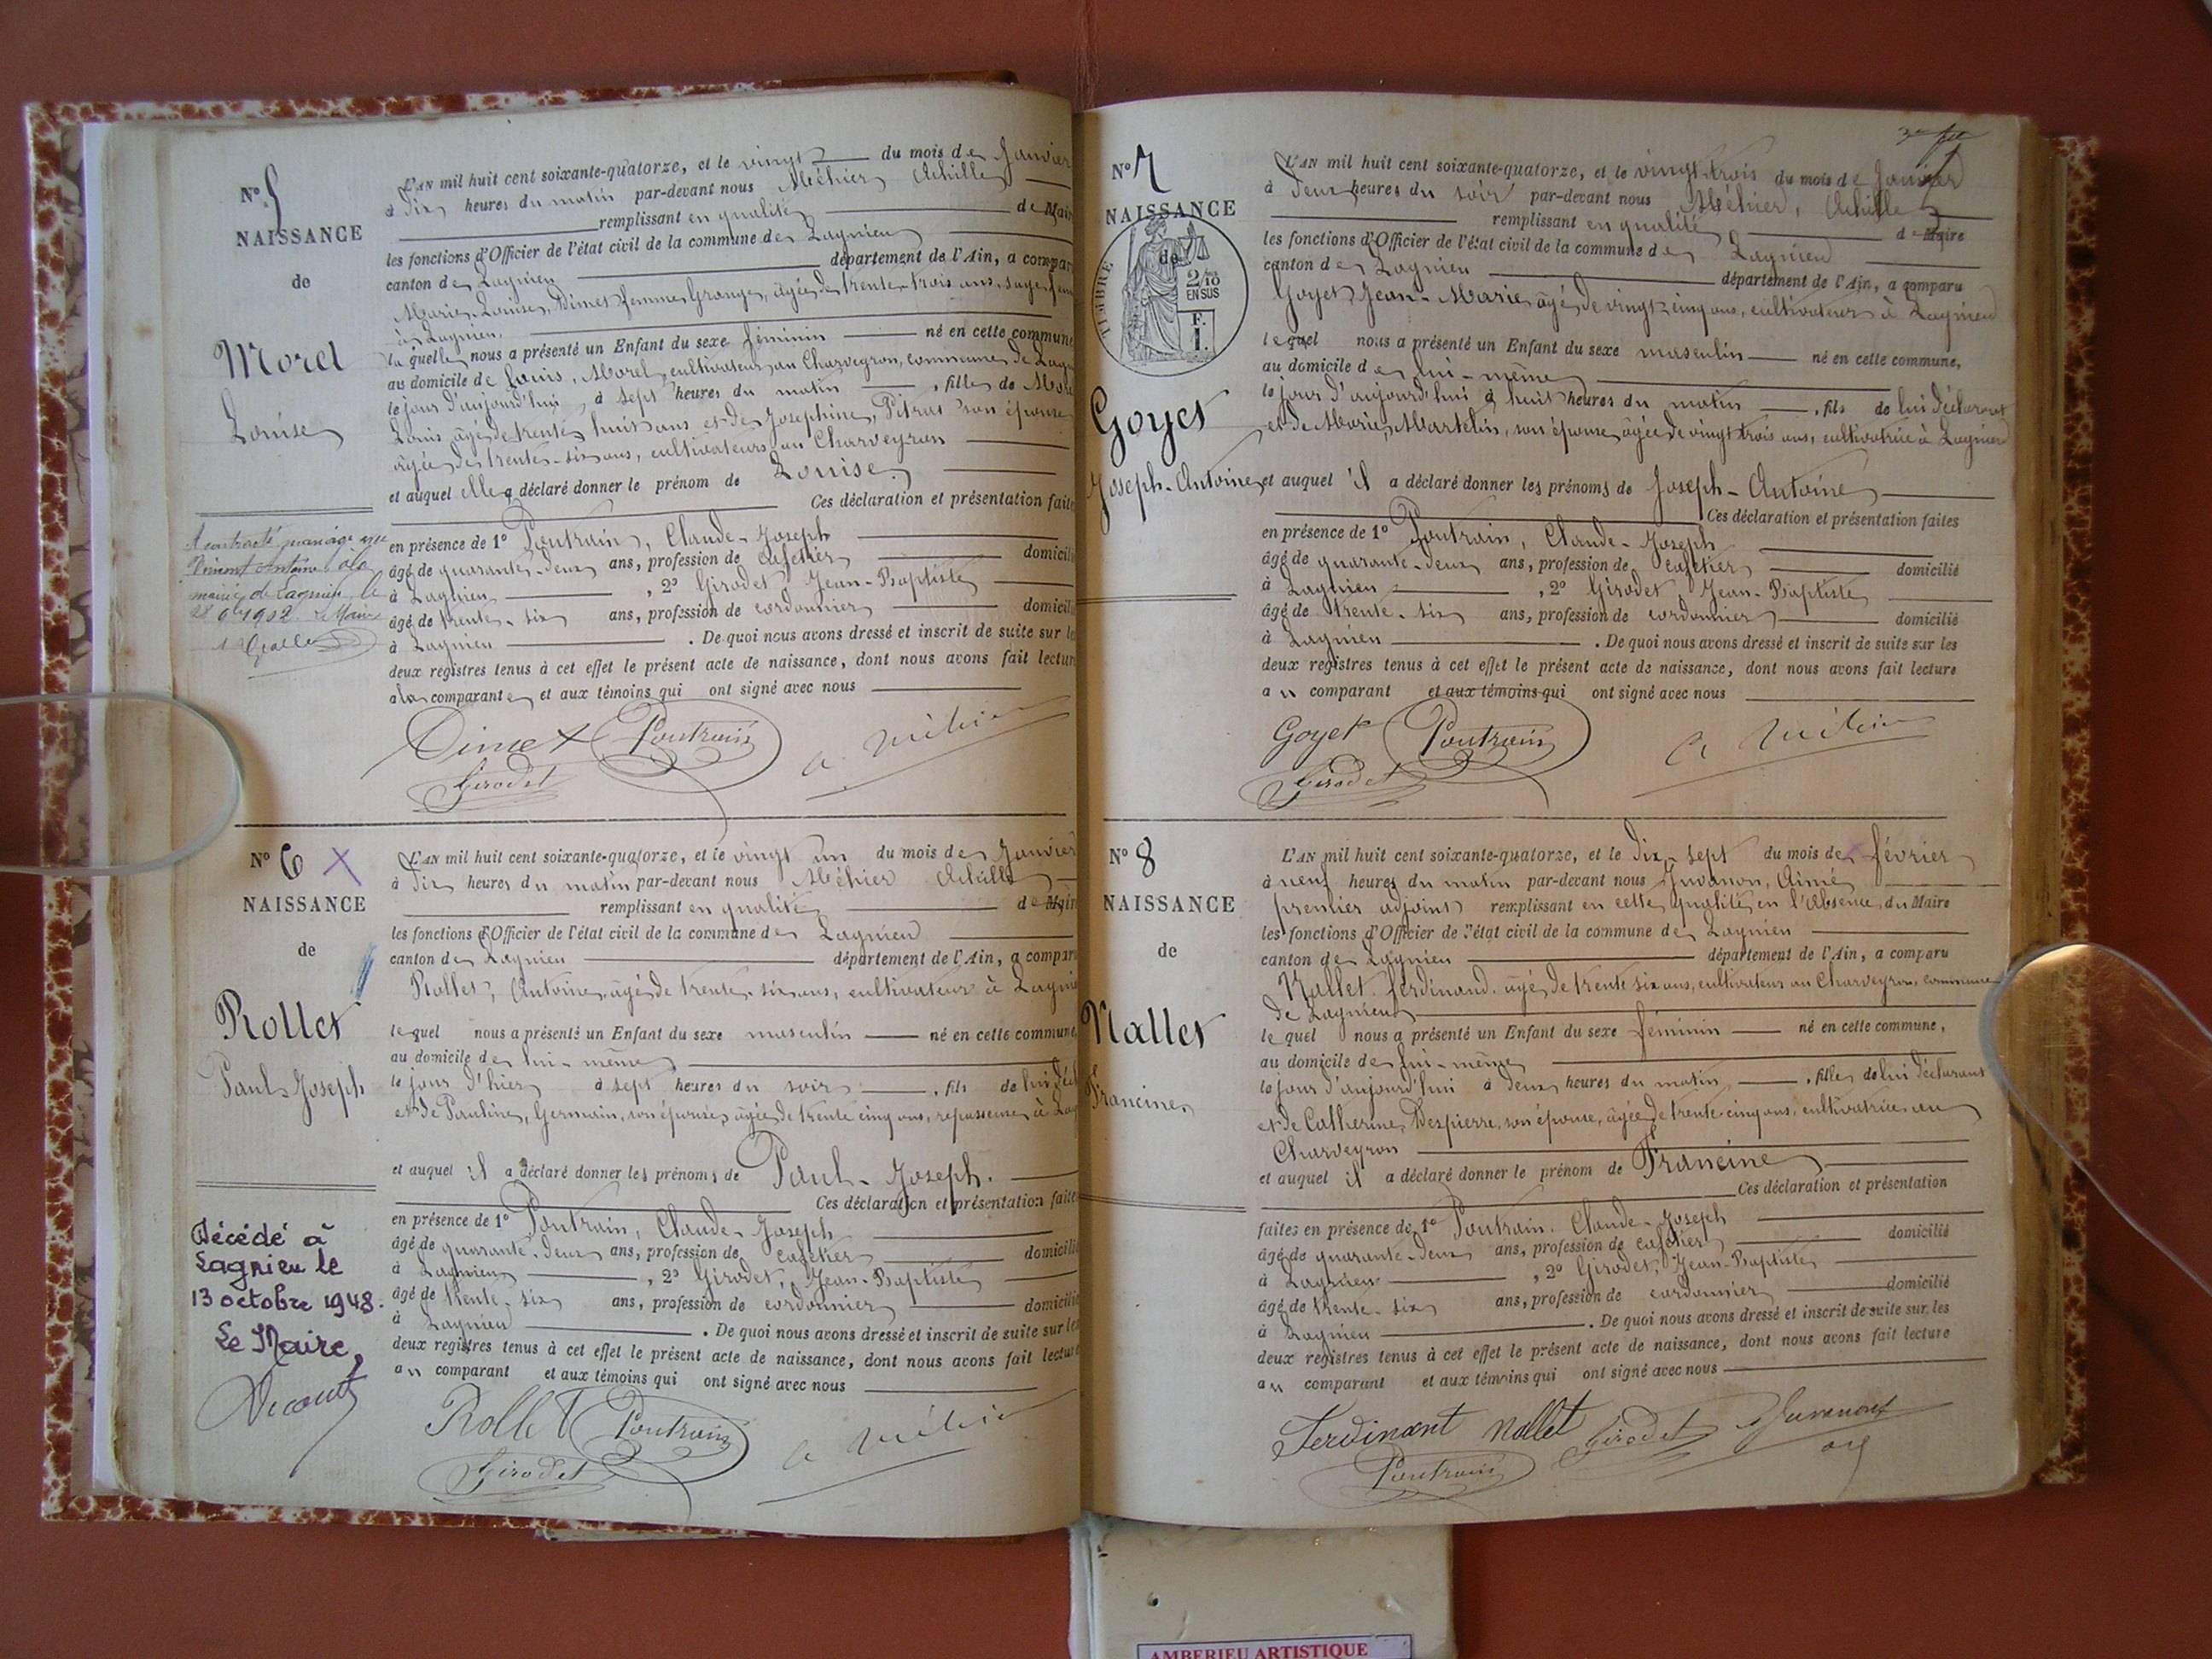 N° 5
NAISSANCE
de
Morel
Louise
A contracté mariage avec
Antoine à la
mairie de Lagnieu le
28 9bre 1902 Le Maire
L'AN mil huit cent soixante-quatorze, et le vingt du mois de Janvier
à dix heures du matin par-devant nous Méhier Achille
remplissant en qualité de Maire
les fonctions d'Officier de l'état civil de la commune de Lagnieu
canton de Lagnieu département de l'Ain, a compar
Marie Louise, Dimet femme Grange, âgée de trente trois ans, sage fem
à Lagnieu,
la quelle nous a présenté un Enfant du sexe féminin né en cette commune
au domicile de Louis, Morel, cultivateur au Charveyron, commune de Lagn
le jour d'aujourd'hui à sept heures du matin, fille de More
Louis âgé de trente huit ans et de Josephine, Pitrat son épouse
âgée de trente-six ans, cultivateurs au Charveyron
et auquel elle a déclaré donner le prénom de Louise
Ces déclaration et présentation faites
en présence de 1° Poutrain, Claude-Joseph
âgé de quarante-deux ans, profession de cafetier domicili
à Lagnieu, 2° Girodet Jean-Baptiste
âgé de trente-six ans, profession de cordonnier domicili
à Lagnieu. De quoi nous avons dressé et inscrit de suite sur le
deux registres tenus à cet effet le présent acte de naissance, dont nous avons fait lectur
a la comparante et aux témoins qui ont signé avec nous
Dimet Poutrain A Méhier
Girodet
N° 6 X
NAISSANCE
de
Rollet
Paul Joseph
Décédé à
Lagnieu le
13 octobre 1948.
Le Maire,
L'AN mil huit cent soixante-quatorze, et le vingt un du mois de Janvier
à dix heures du matin par-devant nous Méhier Achille
remplissant en qualité de Mair
les fonctions d'Officier de l'état civil de la commune de Lagnieu
canton de Lagnieu département de l'Ain, a compar
Rollet, Antoine âgé de trente-six ans, cultivateur à Lagnie
lequel nous a présenté un Enfant du sexe masculin né en cette commune,
au domicile de lui-même
le jour d'hier à sept heures du soir, fils de lui décl
et de Pauline, Germain, son épouse, âgée de trente cinq ans, repasseuse à Lag
et auquel il a déclaré donner les prénoms de Paul-Joseph.
Ces déclaration et présentation faites
en présence de 1° Poutrain, Claude-Joseph
âgé de quarante-deux ans, profession de cafetier domicili
à Lagnieu, 2° Girodet, Jean-Baptiste
âgé de trente-six ans, profession de cordonnier domicilié
à Lagnieu. De quoi nous avons dressé et inscrit de suite sur les
deux registres tenus à cet effet le présent acte de naissance, dont nous avons fait lecture
au comparant et aux témoins qui ont signé avec nous
Rollet Poutrain A Méhier
Girodet
N° 7
NAISSANCE
de
TIMBRE
2/10
EN SUS
F.
1.
Goyet
Joseph-Antoine
L'AN mil huit cent soixante-quatorze, et le vingt trois du mois de Janvier
à deux heures du soir par-devant nous Méhier, Achille
remplissant en qualité de Maire
les fonctions d'Officier de l'état civil de la commune de Lagnieu
canton de Lagnieu département de l'Ain, a comparu
Goyet Jean-Marie âgé de vingt-cinq ans, cultivateur à Lagnieu
lequel nous a présenté un Enfant du sexe masculin né en cette commune,
au domicile de lui-même
le jour d'aujourd'hui à huit heures du matin, fils de lui déclarant
et de Marie, Martelin, son épouse âgée de vingt trois ans, cultivatrice à Lagnieu
et auquel il a déclaré donner les prénoms de Joseph-Antoine
Ces déclaration et présentation faites
en présence de 1° Poutrain, Claude-Joseph
âgé de quarante-deux ans, profession de cafetier domicilié
à Lagnieu, 2° Girodet, Jean-Baptiste
âgé de trente-six ans, profession de cordonnier domicilié
à Lagnieu. De quoi nous avons dressé et inscrit de suite sur les
deux registres tenus à cet effet le présent acte de naissance, dont nous avons fait lecture
au comparant et aux témoins qui ont signé avec nous
Goyet Poutrain A Méhier
Girodet
N° 8
NAISSANCE
de
Nallet
Francine
L'AN mil huit cent soixante-quatorze, et le dix-sept du mois de février
à neuf heures du matin par-devant nous Juvanon, Aimé
premier adjoint remplissant en cette qualité en l'absence du Maire
les fonctions d'Officier de l'état civil de la commune de Lagnieu
canton de Lagnieu département de l'Ain, a comparu
Nallet, ferdinand, âgé de trente six ans, cultivateur au Charveyron, commune
de Lagnieu
le quel nous a présenté un Enfant du sexe féminin né en cette commune,
au domicile de lui-même
le jour d'aujourd'hui à deux heures du matin, fille de lui déclarant
et de Catherine, Despierre, son épouse, âgée de trente-cinq ans, cultivatrice au
Charveyron
et auquel il a déclaré donner le prénom de Francine
Ces déclaration et présentation
faites en présence de 1° Poutrain, Claude-Joseph
âgé de quarante-deux ans, profession de cafetier domicilié
à Lagnieu, 2° Girodet, Jean-Baptiste
âgé de trente-six ans, profession de cordonnier domicilié
à Lagnieu. De quoi nous avons dressé et inscrit de suite sur les
deux registres tenus à cet effet le présent acte de naissance, dont nous avons fait lecture
au comparant et aux témoins qui ont signé avec nous
Ferdinant Nallet Girodet A Juvanon
Poutrain
AMBERIEU ARTISTIQUE